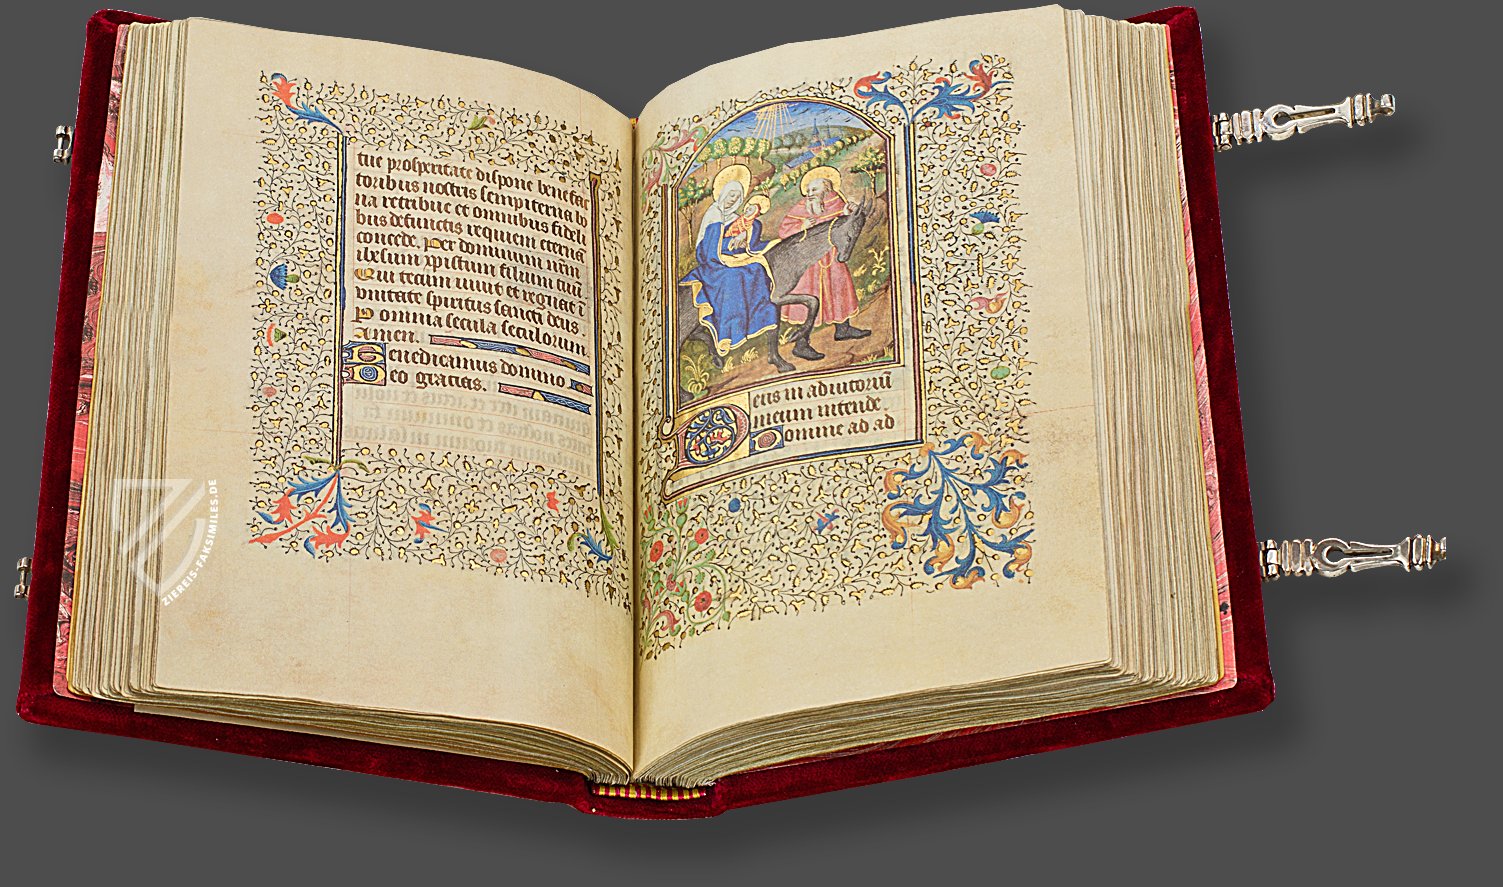 tue prosperitate dispone benefac
toribus nostris sempiterna bo
na retribue et omnibus fideli
bus defunctis requiem eternã
concede. Per dominum nr̃m
ihesum xp̃istum filium tuũ
Qui tecum viuit et regnat ĩ
vnitate spiritus sancti deus.
P omnia secula seculorum
Amen.
Benedicamus domino
Deo gracias.
Deus in adiutoriũ
meum intende.
Domine ad ad
ZIEREIS-FAKSIMILES.DE